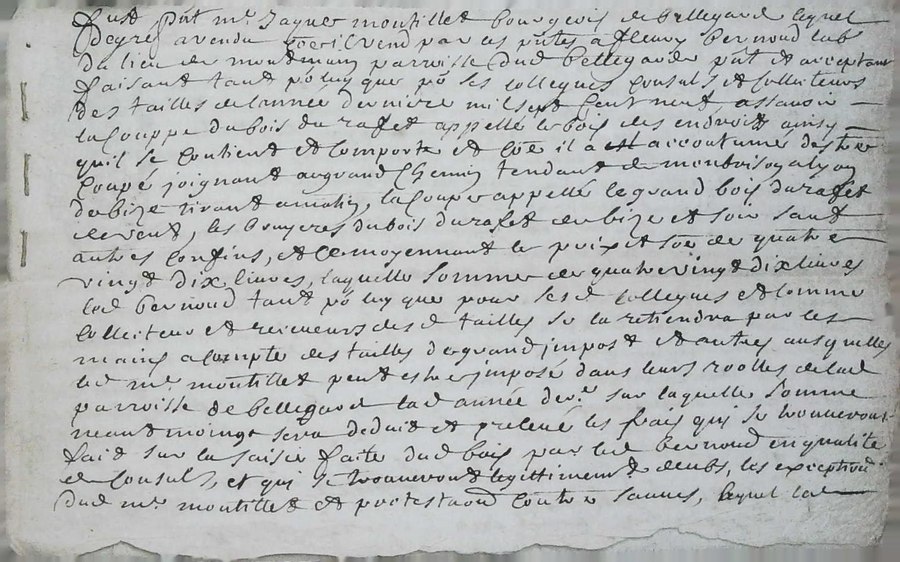 fust p̃nt mr. Jaques montillet bourgeois de bellegard lequel
de gré a vendu coe il vend par ces p̃ntes a fleury bernoud lab.
du lieu de montmain parroisse dud bellegarde p̃nt et acceptant
faisant tant po luy que po ses collegues consuls et collecteurs
des tailles de lannee derniere mil sept cent neuf, assavoir
la couppe du bois du rafet appellé le bois des endroitt ainsy
quil se contient et comporte et coe il a accoutume destre
coupé joignant au grand chemin tendant de montbrison a lyon
de bize tirant a matin, la coupe appellé le grand bois du rafet
de vent, les bruyeres du bois du rafet de bize et soir sauf
autres confins, et ce moyennant le prix et soe de quatre
vingt dix livres, laquelle somme de quatre vingt dix livres
led bernoud tant po luy que pour sesd collegues et comme
collecteur et receveurs desd tailles se la retiendra par les
mains a compte des tailles de grand jmpost et autres ausquelles
led mr. montillet peut estre jmposé dans leurs roolles de lad
parroisse de bellegard lad année der. sur laquelle somme
neantmoings sera deduit et prelevé les frais qui se trouveront
fait sur la saisie faite dud bois par led bernoud en qualite
de consuls, et qui se trouveront legittimemt. deubs, les exceptions
dud mr. montillet et protestaons contre sauves, lequel lad